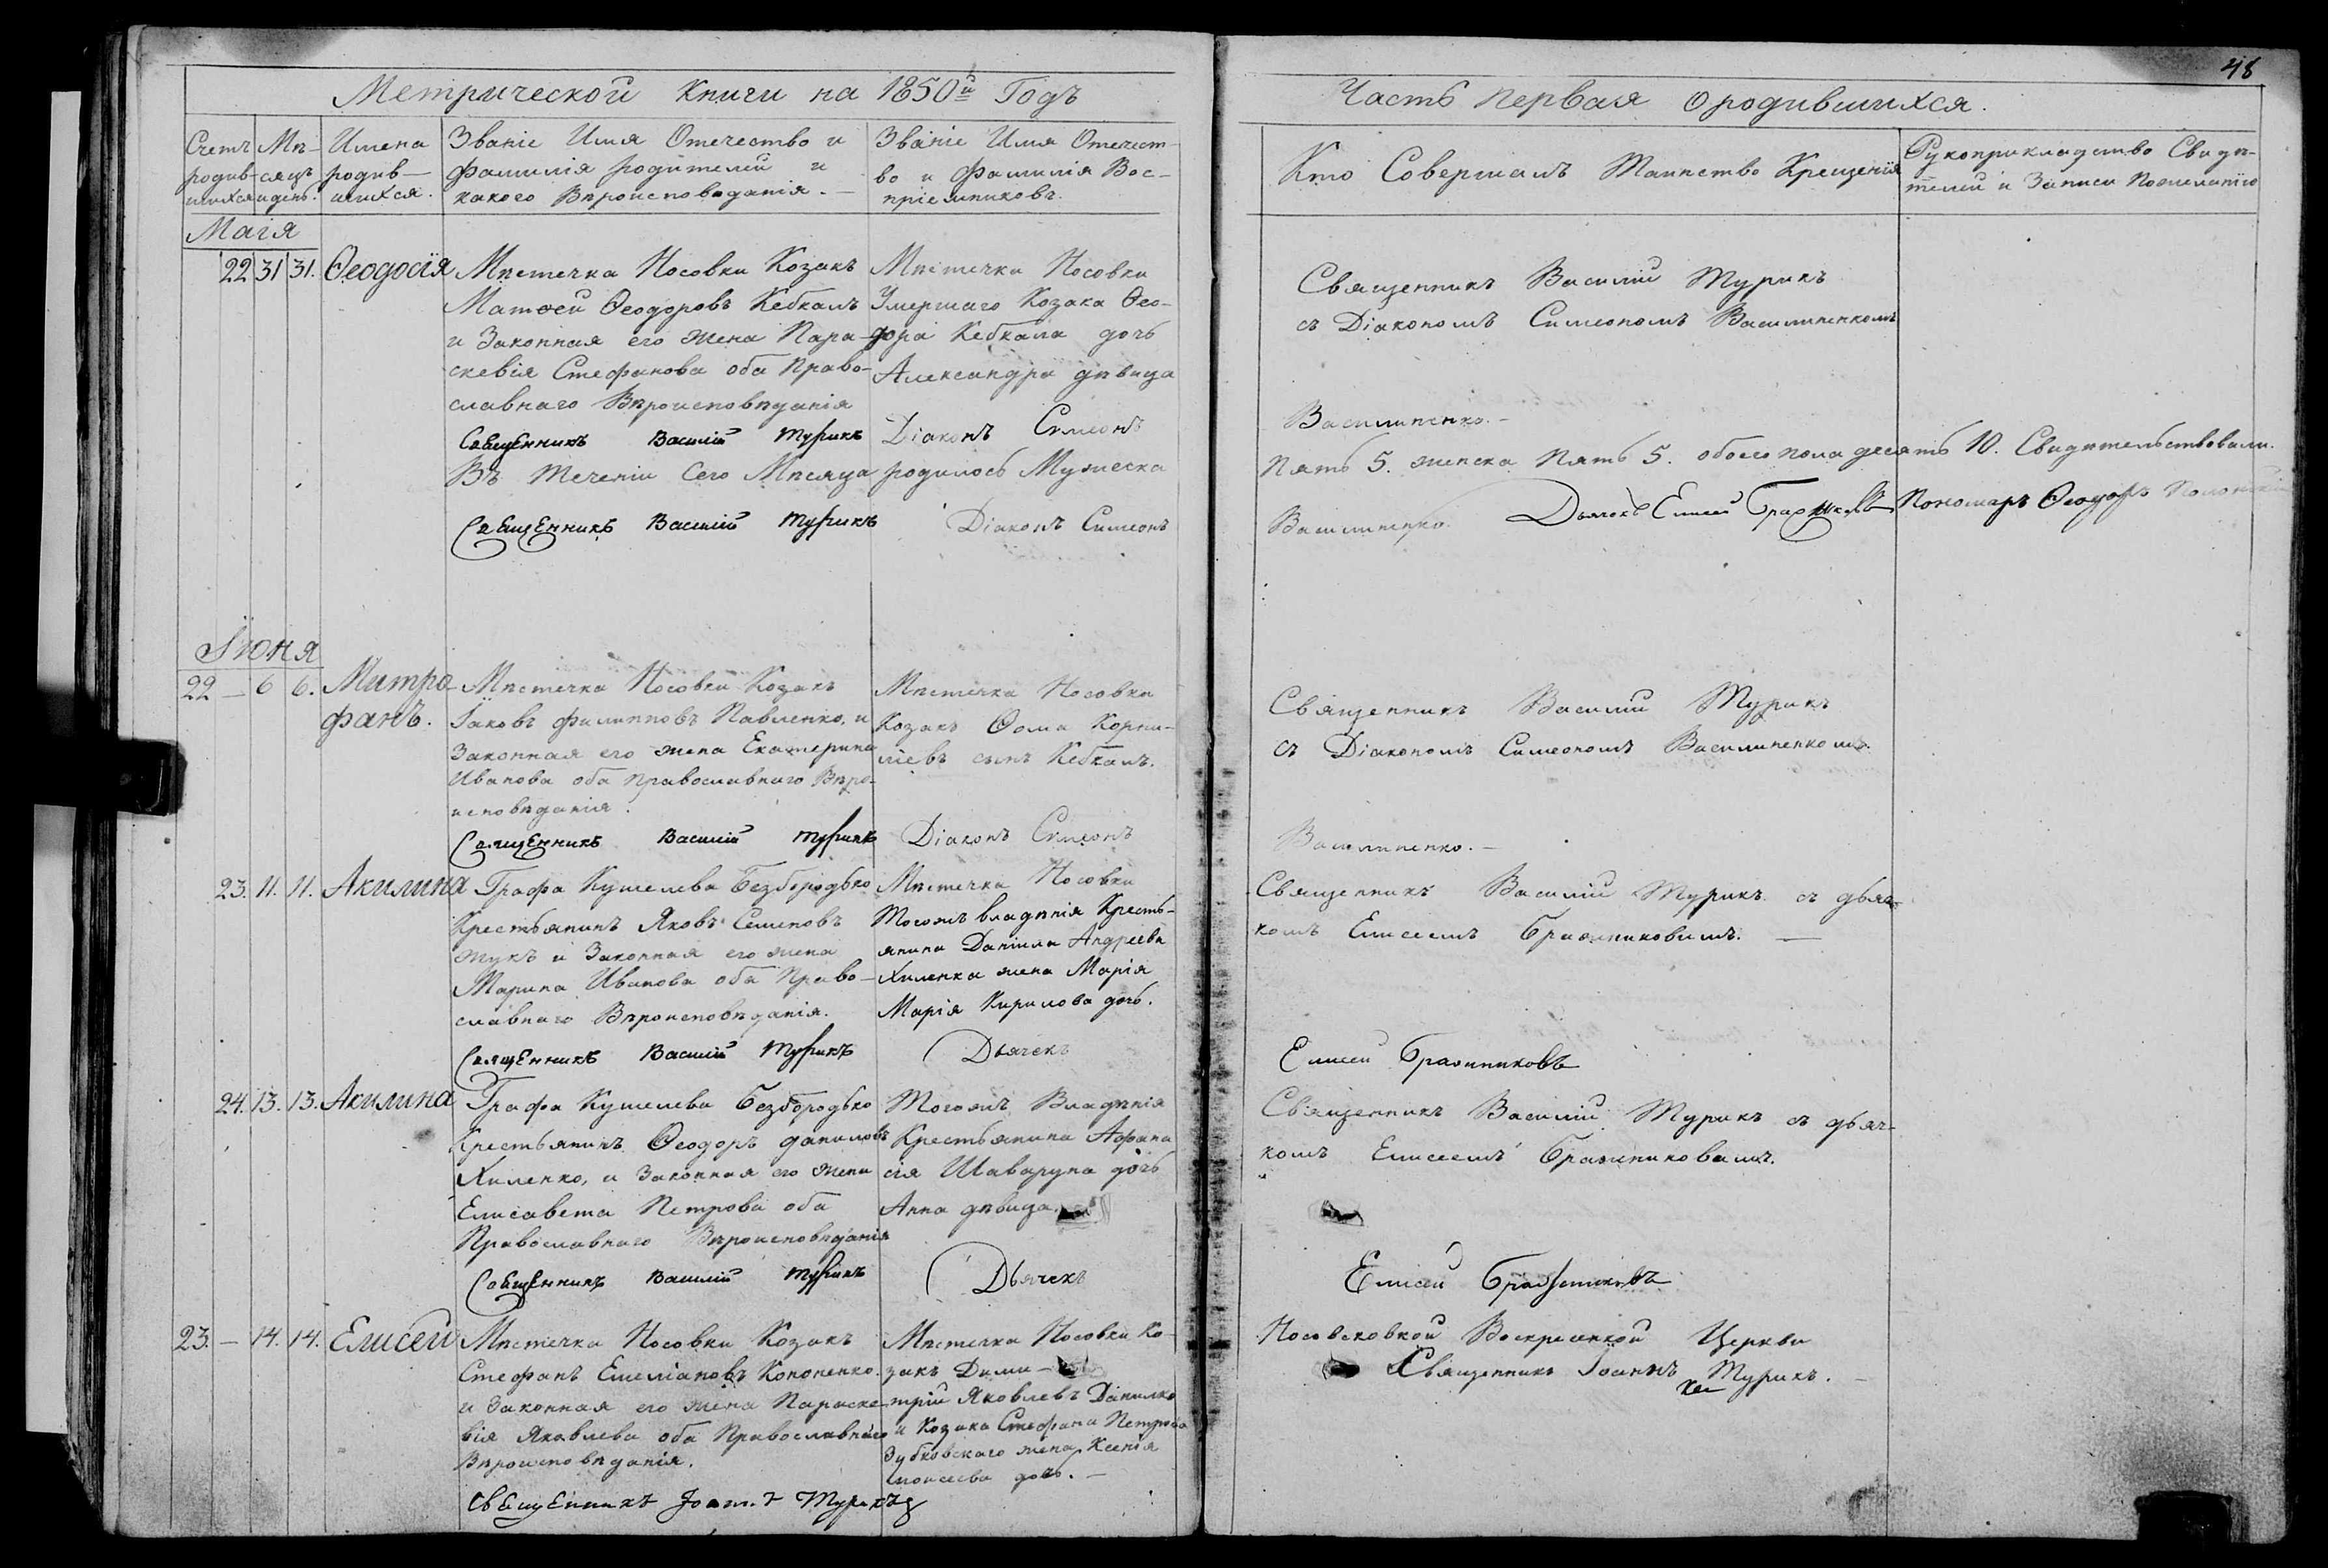 Метрической Книги на 1850й Годъ
Счетъ родив-шихся
Мѣ-сяцъ и день.
Имена родив-шихся.
Званіе Имя Отечество и
Фамилія родителей и
какого Вѣроисповѣданія.
Званіе Имя Отечест-
во и Фамилія Вос-
пріемниковъ.
Маія
22 31 31. Ѳеодосія
Мѣстечка Носовки Козакъ
Матѳей Ѳеодоровъ Кебкалъ
и Законная его жена Пара-
скевія Стефанова оба Право-
славнаго Вѣроисповѣданія
Мѣстечка Носовки
Умершаго Козака Ѳео-
дора Кебкала дочь
Александра дѣвица
Священникъ Василій Турикъ Діаконъ Симеонъ
Въ Теченіи Сего Мѣсяца родилось Мужеска
Священникъ Василій Турикъ Діаконъ Симеонъ
Іюня
22 — 6 6. Митро-
фанъ.
Мѣстечка Носовки Козакъ
Іаковъ Филипповъ Павленко, и
Законная его жена Екатерина
Иванова оба православнаго Вѣро-
исповѣданія.
Мѣстечка Носовки
Козакъ Ѳома Корни-
ліевъ сынъ Кебкалъ.
Священникъ Василій Турикъ Діаконъ Симеонъ
23. 11. 11. Акилина
Графа Кушелева Безбородько
Крестьянинъ Яковъ Семеновъ
Жукъ и Законная его жена
Марина Иванова оба Право-
славнаго Вѣроисповѣданія.
Мѣстечка Носовки
Тогожъ владѣнія Кресть-
янина Даніила Андреева
Хиленка жена Марія
Марія Кирилова дочь.
Священникъ Василій Турикъ Дьячекъ
24. 13. 13. Акилина
Графа Кушелева Безбородько
Крестьянинъ Ѳеодоръ Даниловъ
Хиленко, и Законная его жена
Елисавета Петрова оба
Православнаго Вѣроисповѣданія
Тогожъ Владѣнія
Крестьянина Афана
сія Шаваруна дочь
Анна дѣвица.
Священникъ Василій Турикъ Дьячекъ
23. — 14. 14. Елисей
Мѣстечка Носовки Козакъ
Стефанъ Емеліановъ Кононенко.
и Законная его жена Параске-
вія Яковлева оба Православнаго
Вѣроисповѣданія.
Мѣстечка Носовки Ко-
закъ Дими-
трій Яковлевъ Данилко
и Козака Стефана Петрова
Зубковскаго жена Ксенія
Моисеева дочь.
Священникъ Іоаннъ Турикъ
48
Часть первая о родившихся.
Кто Совершалъ Таинство Крещенія
Рукоприкладство Свидѣ-
телей и Записи Пожеланію
Священникъ Василій Турикъ
съ Діакономъ Симеономъ Василиненкомъ
Василиненко.
Пять 5. женска Пять 5. обоего пола десять 10. Свидѣтельствовали.
Василиненко. Дьячекъ Елисей Бражниковъ Пономарь Ѳеодоръ
Священникъ Василій Турикъ
съ Діакономъ Симеономъ Василиненкомъ.
Василиненко.
Священникъ Василій Турикъ съ дьяч-
комъ Елисеемъ Бражниковымъ.
Елисей Бражниковъ
Священникъ Василій Турикъ съ дьяч-
комъ Елисеемъ Бражниковымъ.
Елисей Бражниковъ
Носовсковкой Воскресенской Церкви
Священникъ Іоаннъ Турикъ.